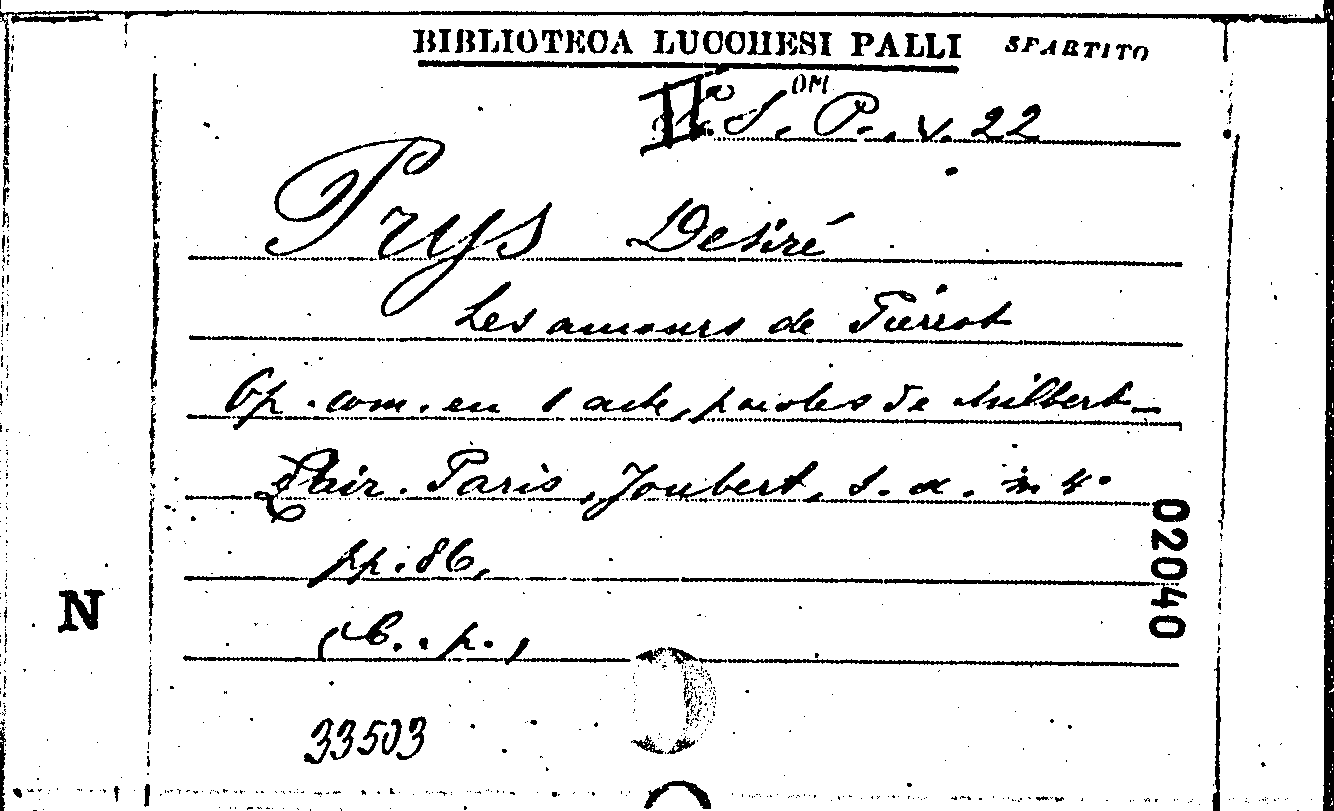 BIBLIOTECA LUCCHESI PALLI SPARTITO
OM
II° S. P. v. 22
Prys Desiré
Les amours de Pierrot
Op. com. en 1 acte, paroles de Milbert-
Clair. Paris, Joubert, s. a. in 4°
pp. 86,
(C. p.)
33503
N
02040